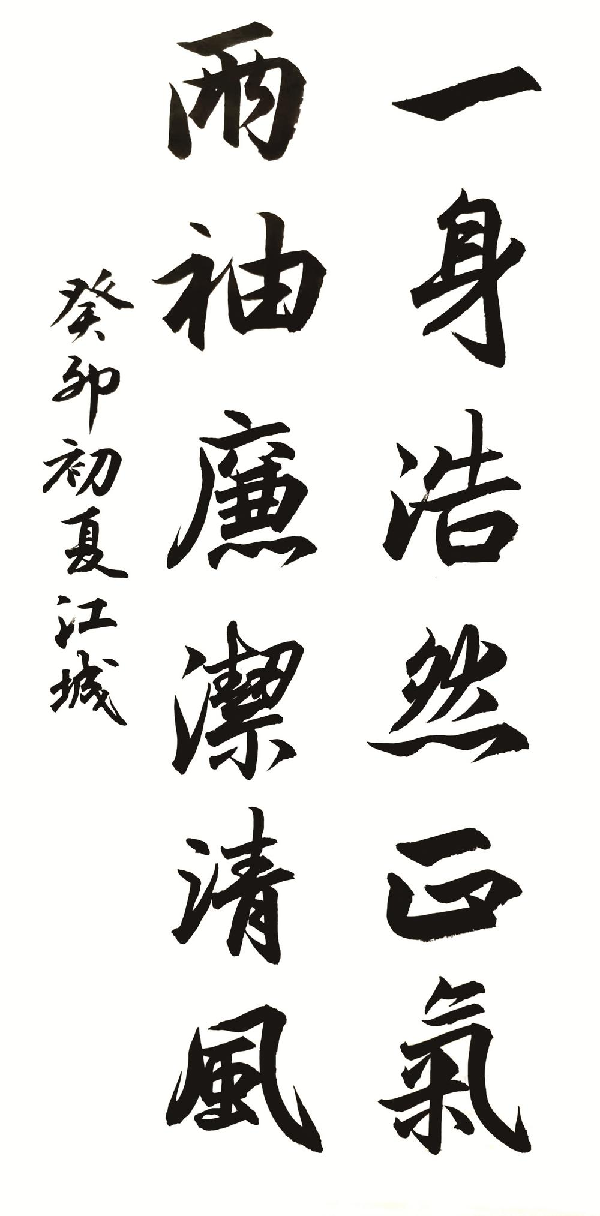 一身浩然正氣
兩袖廉潔清風
癸卯初夏江城